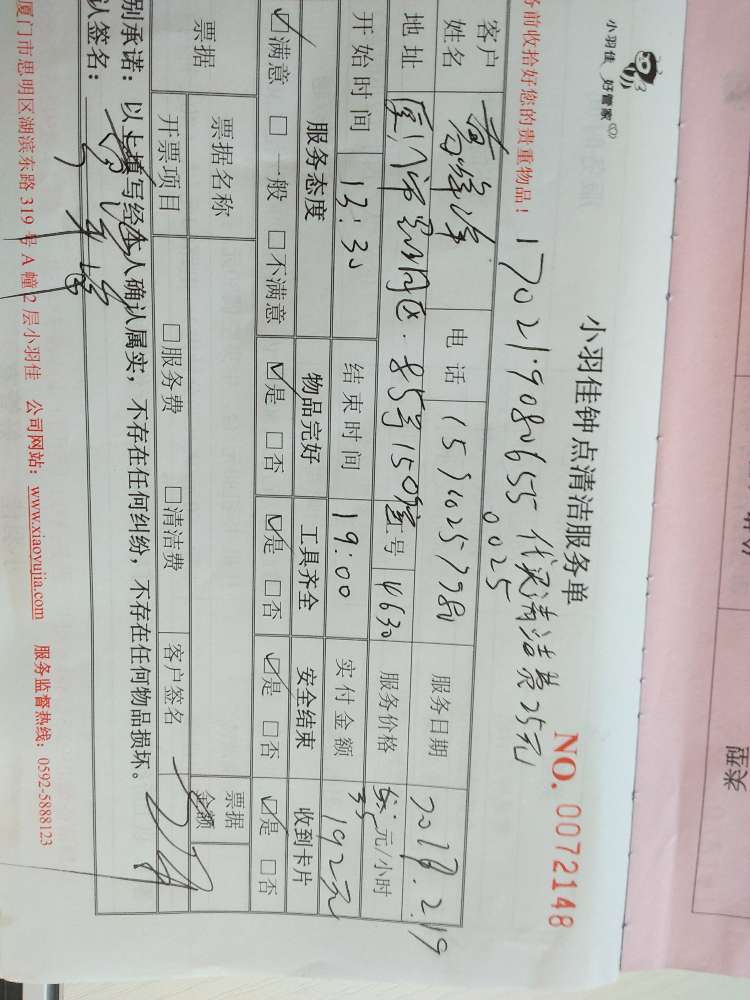 小羽佳 好管家
小羽佳钟点清洁服务单
NO. 0072148
务前收拾好您的贵重物品！
清洁费25元
客户姓名 电话 服务日期
地址 厦门市 区 85号150 工号 4630 服务价格 元/小时
开始时间 13:30 结束时间 19:00 实付金额 192元
服务态度 物品完好 工具齐全 安全结束 收到卡片
☑满意 □一般 □不满意 ☑是 □否 ☑是 □否 ☑是 □否 ☑是 □否
票据 票据名称 票据金额
开票项目 □服务费 □清洁费 客户签名
别承诺：以上填写经本人确认属实，不存在任何纠纷，不存在任何物品损坏。
认签名：
厦门市思明区湖滨东路 319 号 A 幢 2 层小羽佳 公司网站：www.xiaoyujia.com 服务监督热线：0592-5888123